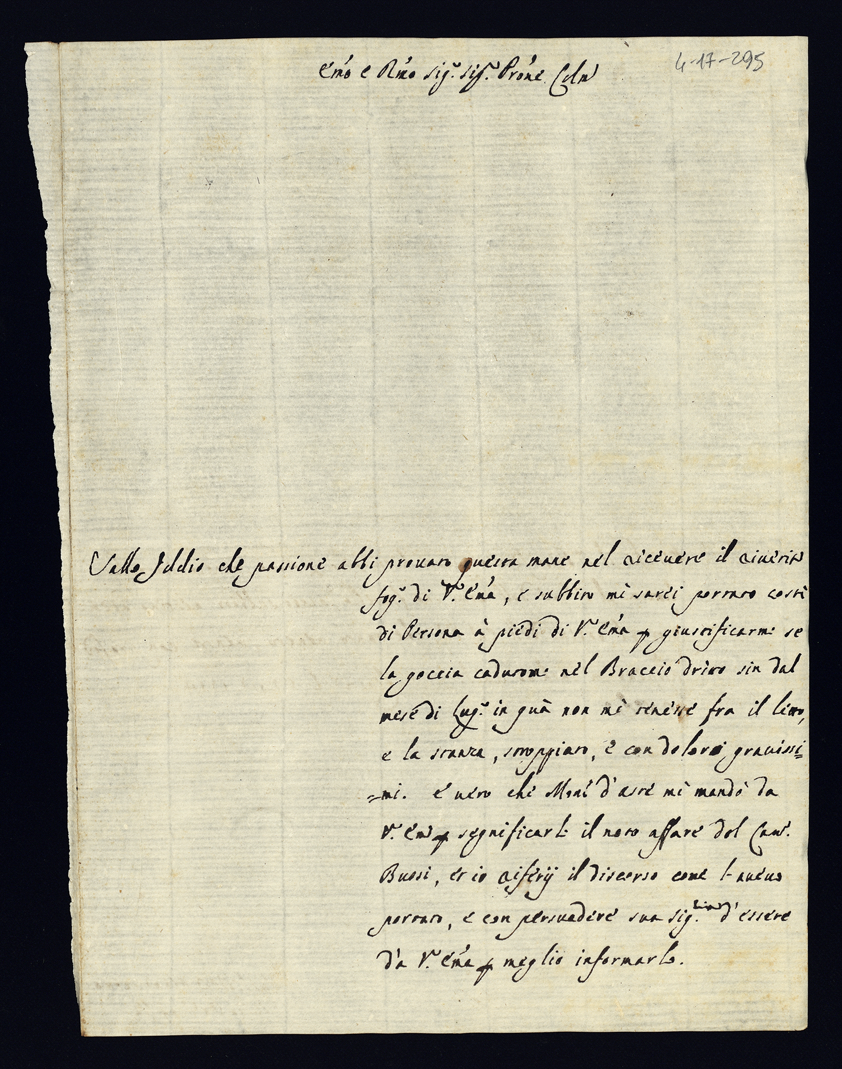 4-17-295
Em̃o e Rm̃o Sig.r Sig.r Prõne Colm̃o
Sallo Iddio che passione abbi provato questa mane nel ricevere il riverito
fog.o di V.a Em̃a, e subbito mi sarei portato costì
di Persona à piedi di V.a Em̃a p giustificarmi se
la goccia cadutomi nel Braccio dritto sin dal
mese di Lug.o in quà non mi tenesse fra il letto,
e la stanza, stroppiato, e con dolori gravissi=
=mi. è vero che d'Aste mi mandò da
V.a Em̃a p significarli il noto affare del Cav.r
Bussi, et io riferij il discorso come l'avevo
portato, e con persuadere sua Sig.ria d'essere
da V.a Em̃a p meglio informarlo.